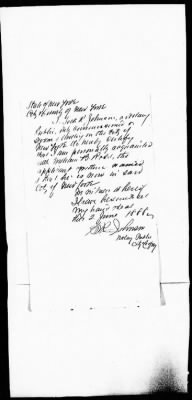 State of New York
City & County of New York
I, Johnson, a Notary
Public, duly commissioned &
sworn & dwelling in the City of
New York do hereby Certify
that I am personally acquainted
with William B. the
applicant
& that he is now in said
City of New York
In witness whereof
I have hereunto set
my hand & seal
this 2 June 1866
Johnson
Notary Public